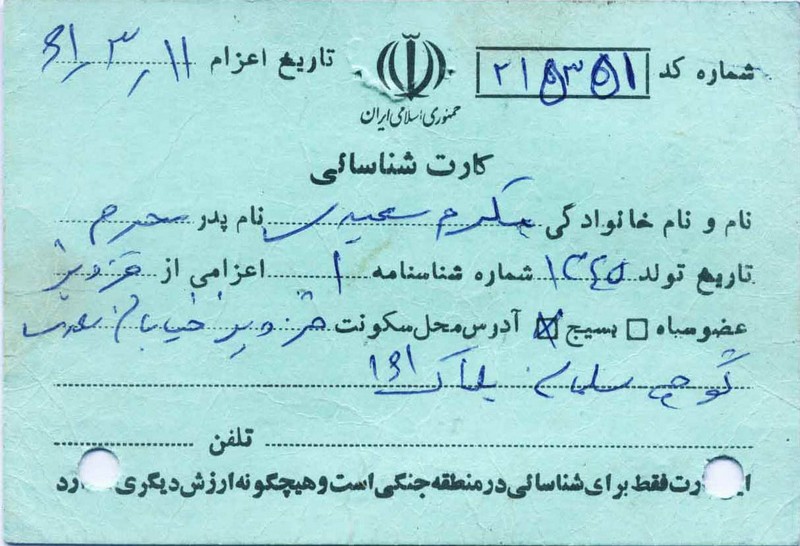 شماره کد ۲۱۵۳۵۱ تاریخ اعزام ۶۱/۳/۱۱
جمهوری اسلامی ایران
کارت شناسائی
نام و نام خانوادگی مکرم سعیدی نام پدر محرم
تاریخ تولد ۱۳۴۵ شماره شناسنامه ۱ اعزامی از قزوین
عضو سپاه بسیج آدرس محل سکونت قزوین خیابان سعدی
کوچه سلمان پلاک
تلفن
رت فقط برای شناسائی در منطقه جنگی است و هیچگونه ارزش دیگری رد